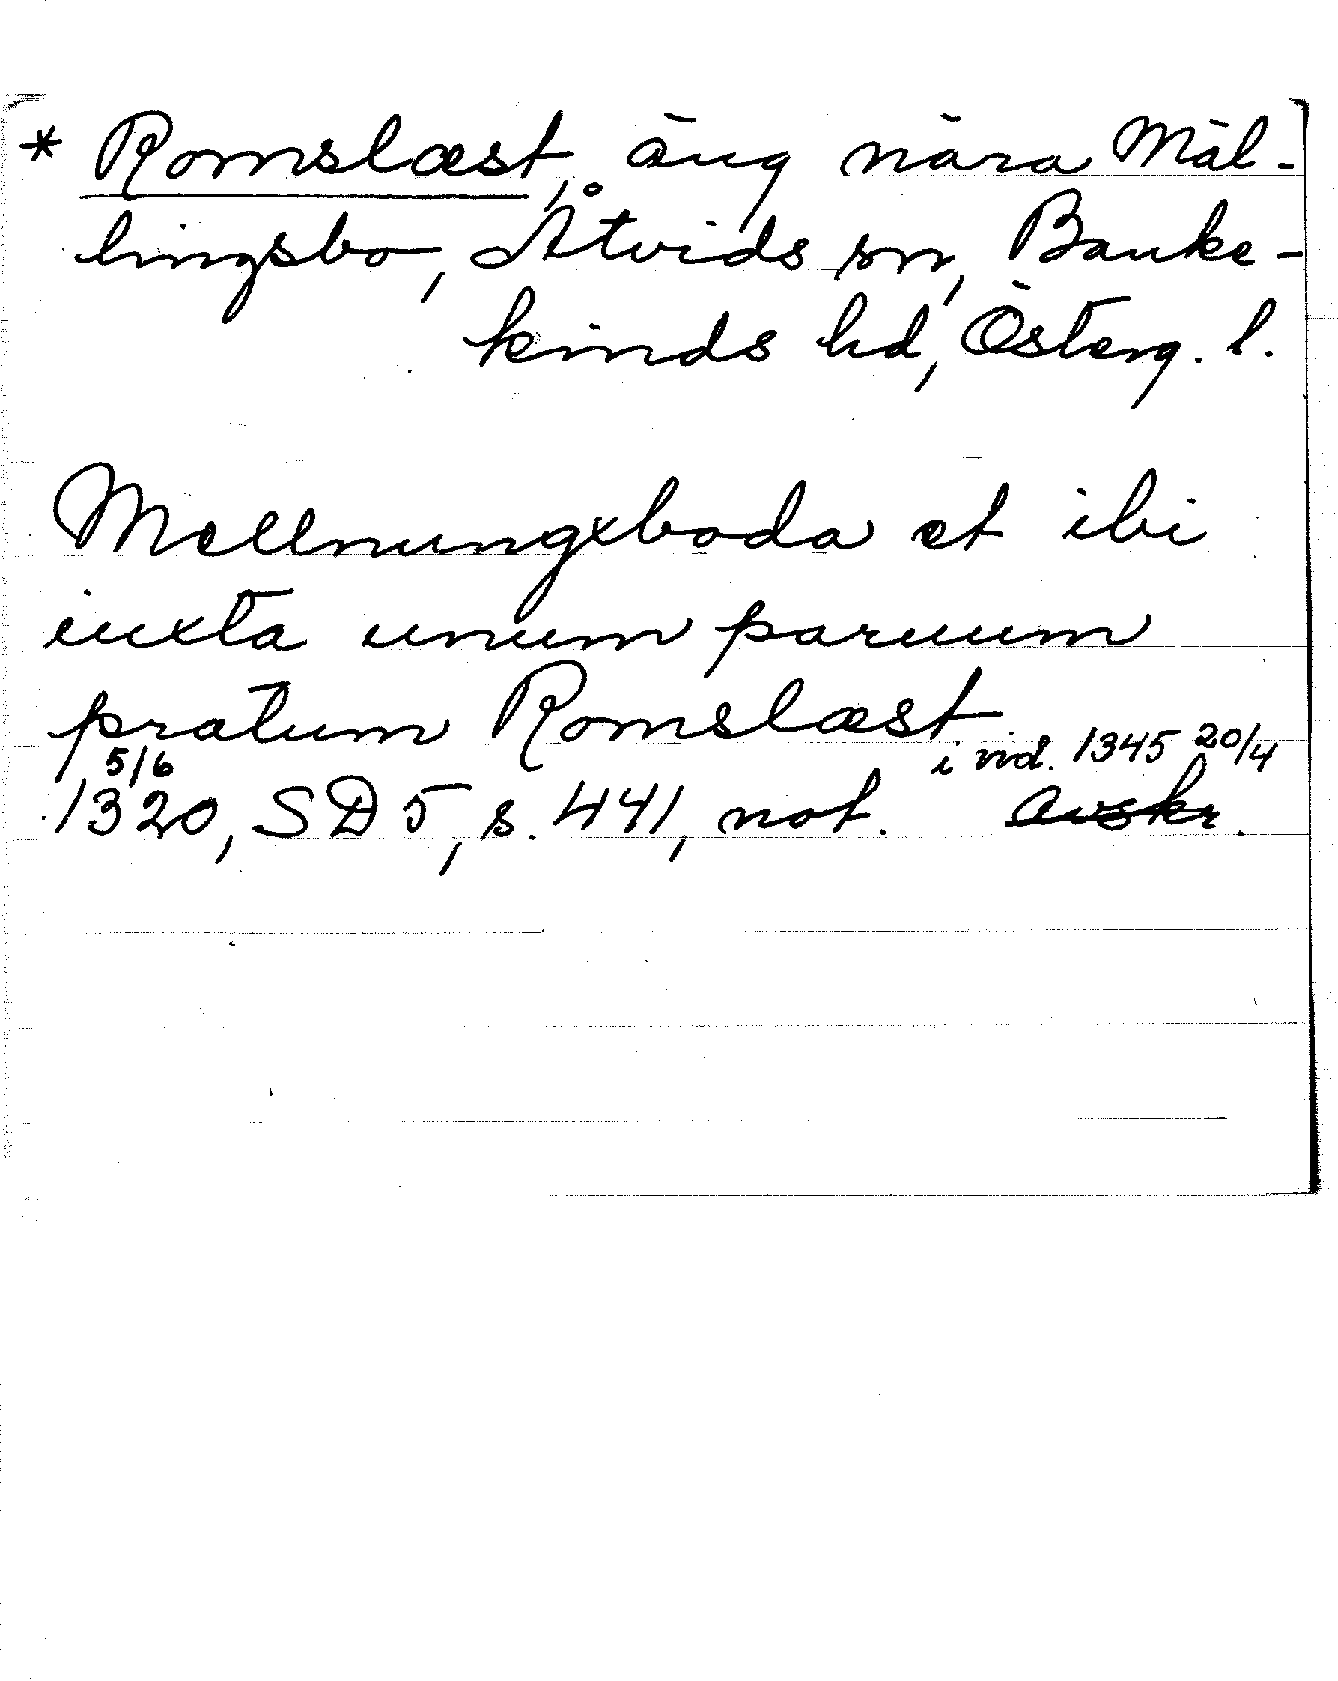 * Romslæst, äng nära Mäl-
lingsbo, Åtvids sn, Banke-
kinds hd, Österg. l.
Mellnungxboda et ibi
iuxta unum paruum
pratum Romslæst
i vid. 1345 20/4
5/6
1320, SD 5, s. 441, not. Avskr.